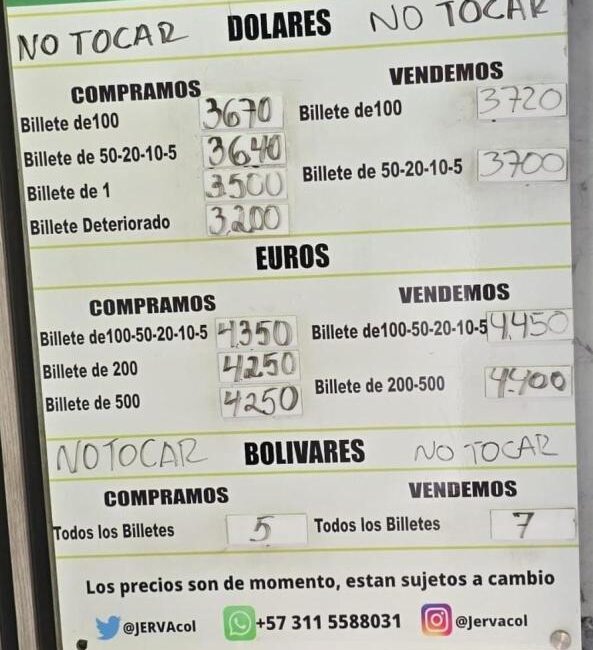 NO TOCAR DOLARES NO TOCAR
COMPRAMOS VENDEMOS
Billete de100 3670 Billete de100 3720
Billete de 50-20-10-5 3640 Billete de 50-20-10-5 3700
Billete de 1 3.500
Billete Deteriorado 3.200
EUROS
COMPRAMOS VENDEMOS
Billete de100-50-20-10-5 4.350 Billete de100-50-20-10-5 4.450
Billete de 200 4250 Billete de 200-500 4.400
Billete de 500 4250
NO TOCAR BOLIVARES NO TOCAR
COMPRAMOS VENDEMOS
Todos los Billetes 5 Todos los Billetes 7
Los precios son de momento, estan sujetos a cambio
@JERVAcol +57 311 5588031 @Jervacol